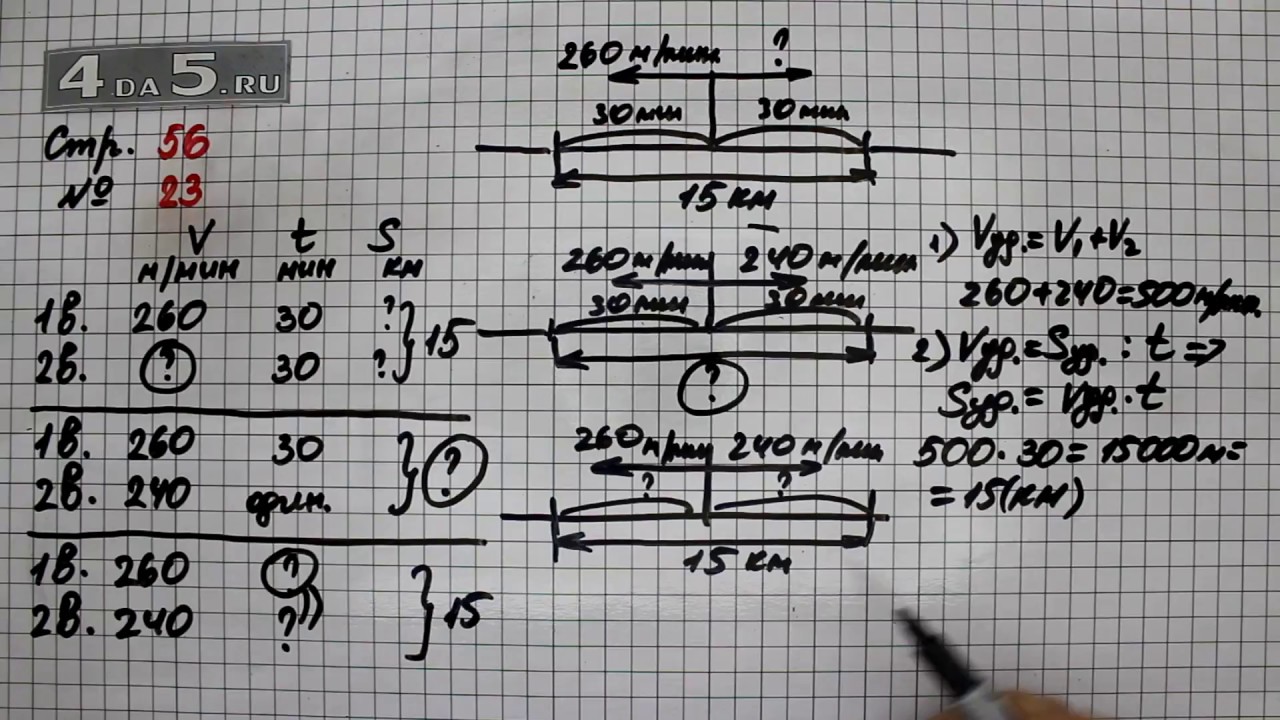 4 DA 5.RU
Стр. 56
№ 23
V t S
м/мин мин км
1в. 260 30 ?
2в. ? 30 ?
} 15
1в. 260 30
2в. 240 один.
} ?
1в. 260 ?
2в. 240 ?
} 15
260 м/мин ?
30 мин 30 мин
15 км
260 м/мин 240 м/мин
30 мин 30 мин
?
260 м/мин 240 м/мин
? ?
15 км
1) Vуд.= V₁+V₂
260+240=500м/мин.
2) Vуд.= Sуд. : t =>
Sуд.= Vуд. · t
500 · 30 = 15000м=
= 15(км)